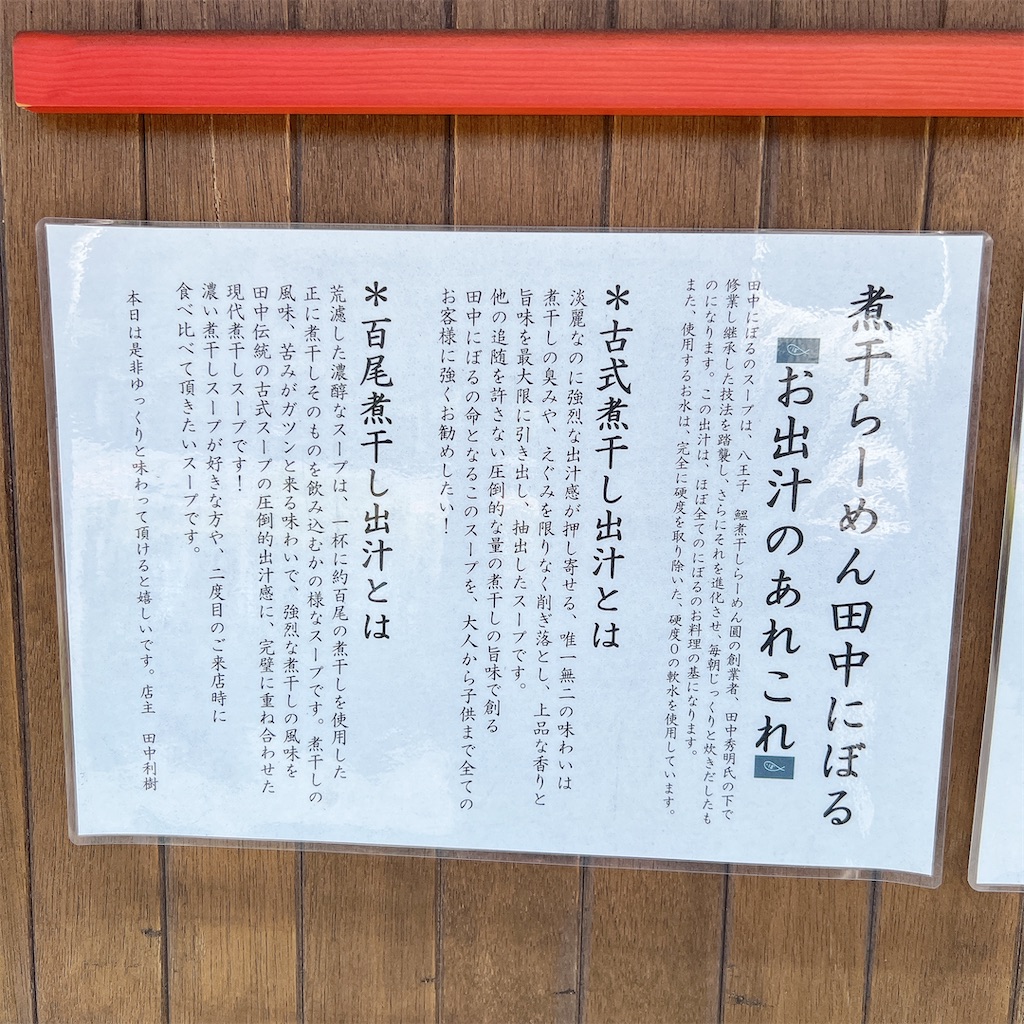 煮干らーめん田中にぼる
お出汁のあれこれ
田中にぼるのスープは、八王子 鰮煮干しらーめん圓の創業者、田中秀明氏の下で
修業し継承した技法を踏襲し、さらにそれを進化させ、毎朝じっくりと炊きだしたも
のになります。この出汁は、ほぼ全てのにぼるのお料理の基になります。
また、使用するお水は、完全に硬度を取り除いた、硬度0の軟水を使用しています。
＊古式煮干し出汁とは
淡麗なのに強烈な出汁感が押し寄せる、唯一無二の味わいは
煮干しの臭みや、えぐみを限りなく削ぎ落とし、上品な香りと
旨味を最大限に引き出し、抽出したスープです。
他の追随を許さない圧倒的な量の煮干しの旨味で創る
田中にぼるの命となるこのスープを、大人から子供まで全ての
お客様に強くお勧めしたい！
＊百尾煮干し出汁とは
荒濾した濃醇なスープは、一杯に約百尾の煮干しを使用した
正に煮干しそのものを飲み込むかの様なスープです。煮干しの
風味、苦みがガツンと来る味わいで、強烈な煮干しの風味を
田中伝統の古式スープの圧倒的出汁感に、完璧に重ね合わせた
現代煮干しスープです！
濃い煮干しスープが好きな方や、二度目のご来店時に
食べ比べて頂きたいスープです。
本日は是非ゆっくりと味わって頂けると嬉しいです。店主 田中利樹